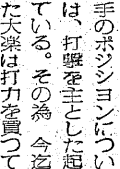 手のポジシヨンについ
は、打撃を主とした起
ている。その為　今迄
た大楽は打力を買つて